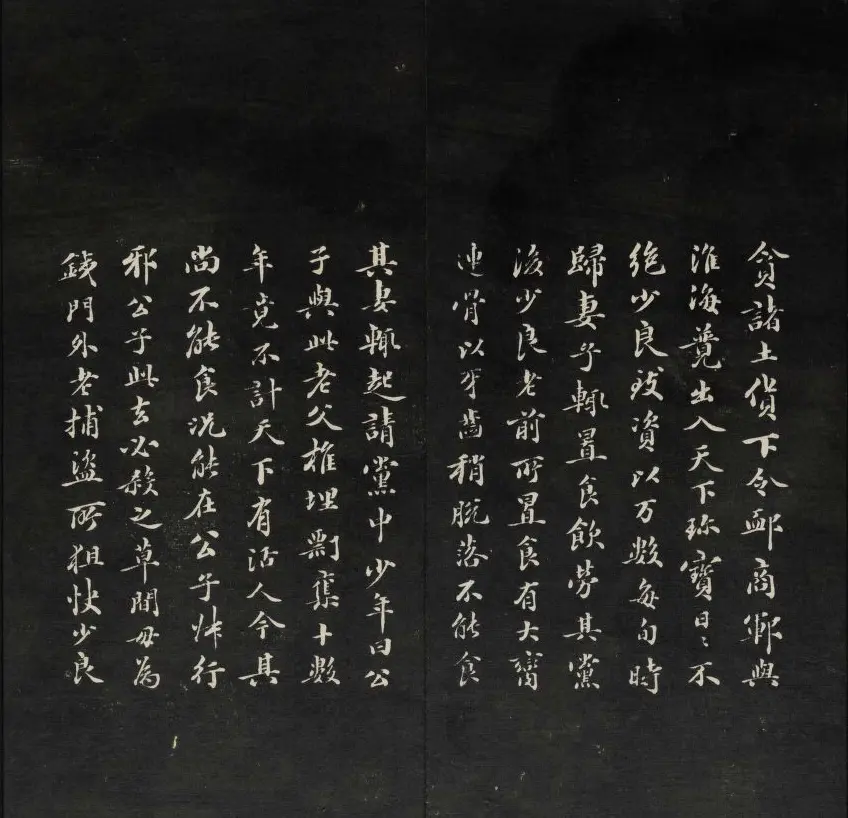 貪諸土貨下令郵商鄆與
淮海競出入天下珍寶日〻不
絕少良致資以万數每旬時
歸妻子輒置食飲勞其黨
後少良老前所置食有大臠
連骨以牙齒稍脫落不能食
其妻輒起請黨中少年曰公
子與此老父椎埋剽奪十數
年竟不計天下有活人今其
尚不能食況能在公子叔行
邪公子此去必殺之草間毋為
鐵門外老捕盜所狙快少良